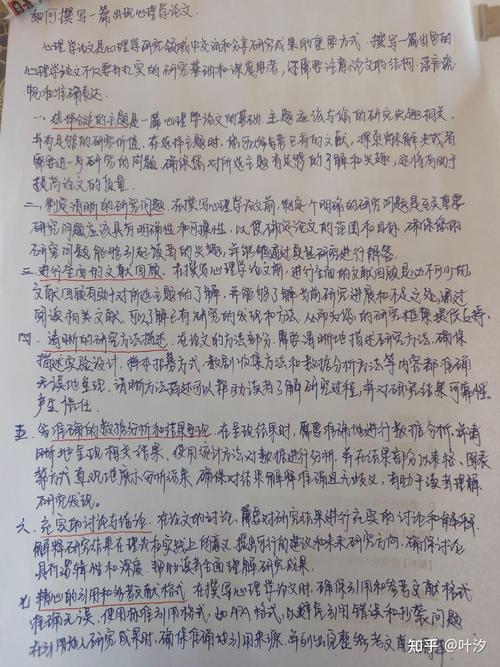 如何撰写一篇出色心理学论文.
心理学论文是心理学研究领域中交流和分享研究成果的重要方式. 撰写一篇出色的
心理学论文不仅要有扎实的研究基础和深度思考, 还需要注意论文的结构. 语言流
畅和准确表达.
一. 选择合适的主题是一篇心理学论文的基础. 主题应该与你的研究兴趣相关.
并有足够的研究价值. 在选择主题时, 可以参考已有的文献, 探索尚未解决或者
需要进一步研究的问题. 确保您对所选主题有足够的了解和兴趣, 这将有助于
提高论文的质量.
二. 制定清晰的研究问题. 在撰写心理学论文前, 制定一个明确的研究问题至关重要
研究问题应该具有明确性和可操性, 以便确定论文的范围和目标. 确保您的
研究问题能够引起读者的兴趣, 并能够通过具体研究进行解答.
三. 进行全面的文献回顾. 在撰写心理学论文前, 进行全面的文献回顾是必不可少的.
文献回顾有助于对所选主题的了解, 并能够了解当前研究进展和不足之处. 通过
阅读相关文献, 可以了解已有研究的发现和方法, 从而为您的研究框架提供支持.
四. 清晰的研究方法描述. 在论文的方法部分, 需要清晰地描述研究方法, 确保
描述实验设计, 样本招募方式, 数据收集方法和数据分析方法等内容都准确
无误地呈现. 清晰方法描述可以帮助读者了解研究过程, 并对研究结果可靠性
产生信任.
五. 准确的数据分析和结果呈现. 在呈现结果时, 需要准确地进行数据分析, 并清
晰地呈现相关结果. 使用统计方法对数据进行分析, 并在结果部分以表格、图表
等方式直观地展示分析结果. 确保对结果解释准确且无歧义, 有助于读者理解
研究发现.
六. 充实的讨论与结论. 在论文的讨论, 需要对研究结果进行充实的讨论和解释.
解释研究结果在理论和实践上的意义. 提出可行的建议和未来研究方向, 确保讨论
具有逻辑性和深度, 帮助读者全面理解研究成果.
七. 精心的引用和参考文献格式. 在撰写心理学论文时, 确保引用和参考文献格式
准确无误, 使用标准引用格式, 如APA格式, 以避免引用错误和抄袭问题
在引用他人研究成果时, 确保准确地引用来源. 并列出完整参考文
知乎 @叶汐